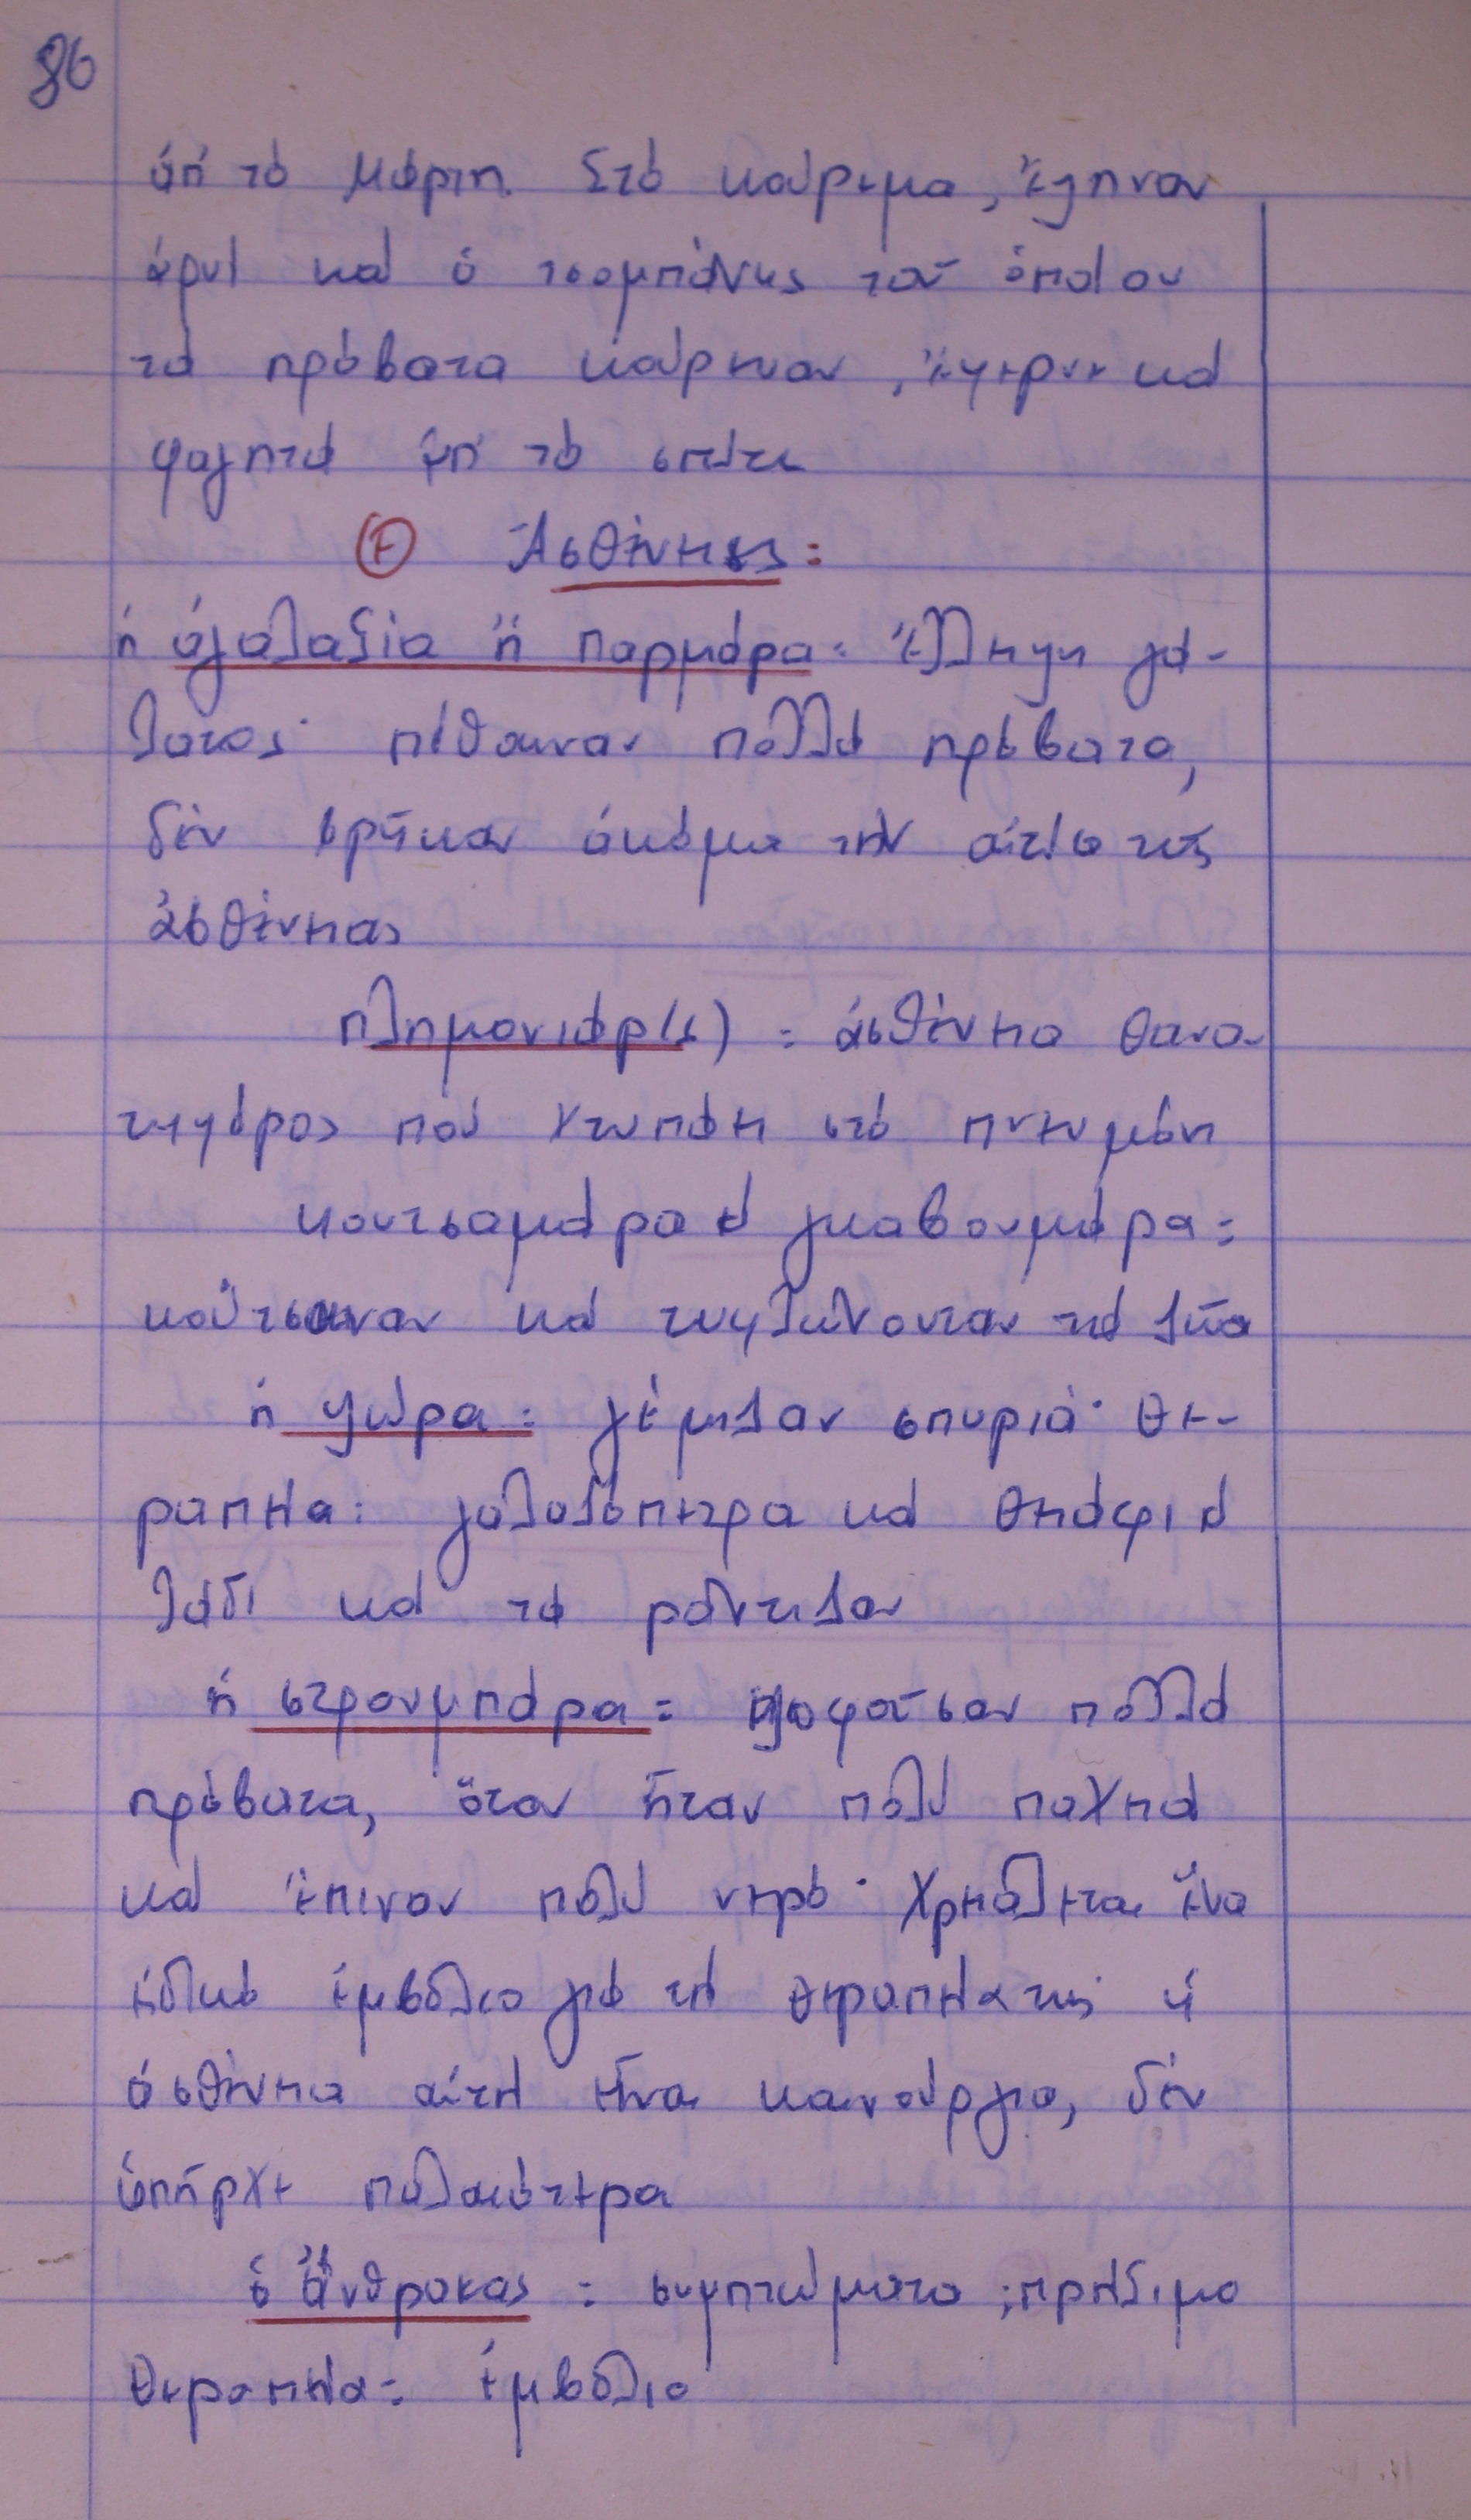 86
ἀπ' τό Μάρτη. Στό κούρεμα, ἔψηναν
ἀρνί καί ὁ τσομπάνης τοῦ ὁποίου
τά πρόβατα κούρευαν, ἔφερνε καί
φαγητά ἀπ' τό σπίτι
Ἀσθένειες:
ἡ ἀγαλαξία ἤ παρμάρα: ἔλλειψη γά-
λατος· πέθαιναν πολλά πρόβατα,
δέν βρῆκαν ἀκόμα τήν αἰτία τῆς
ἀσθένειας
πλημονιάρ(ι) = ἀσθένεια θανα-
τηφόρος πού χτυπάει στό πνευμόνι
κουτσαμάρα καί γκαβουμάρα:
κούτσαιναν καί τυφλώνονταν τά ζῶα
ἡ ψώρα: γέμιζαν σπυριά· θε-
ραπεία: γαλαζόπετρα καί θειάφι καί
λάδι καί τά ράντιζαν
ἡ στρουμπάρα = ψοφοῦσαν πολλά
πρόβατα, ὅταν ἦταν πολύ παχειά
καί ἔπιναν πολύ νερό· χρειάζεται ἕνα
εἰδικό ἐμβόλιο γιά τή θεραπεία της· ἡ
ἀσθένεια αὐτή εἶναι καινούργια, δέν
ὑπῆρχε παλαιότερα
ὁ ἄνθρακας = συμπτώματα: πρήξιμο
θεραπεία= ἐμβόλιο